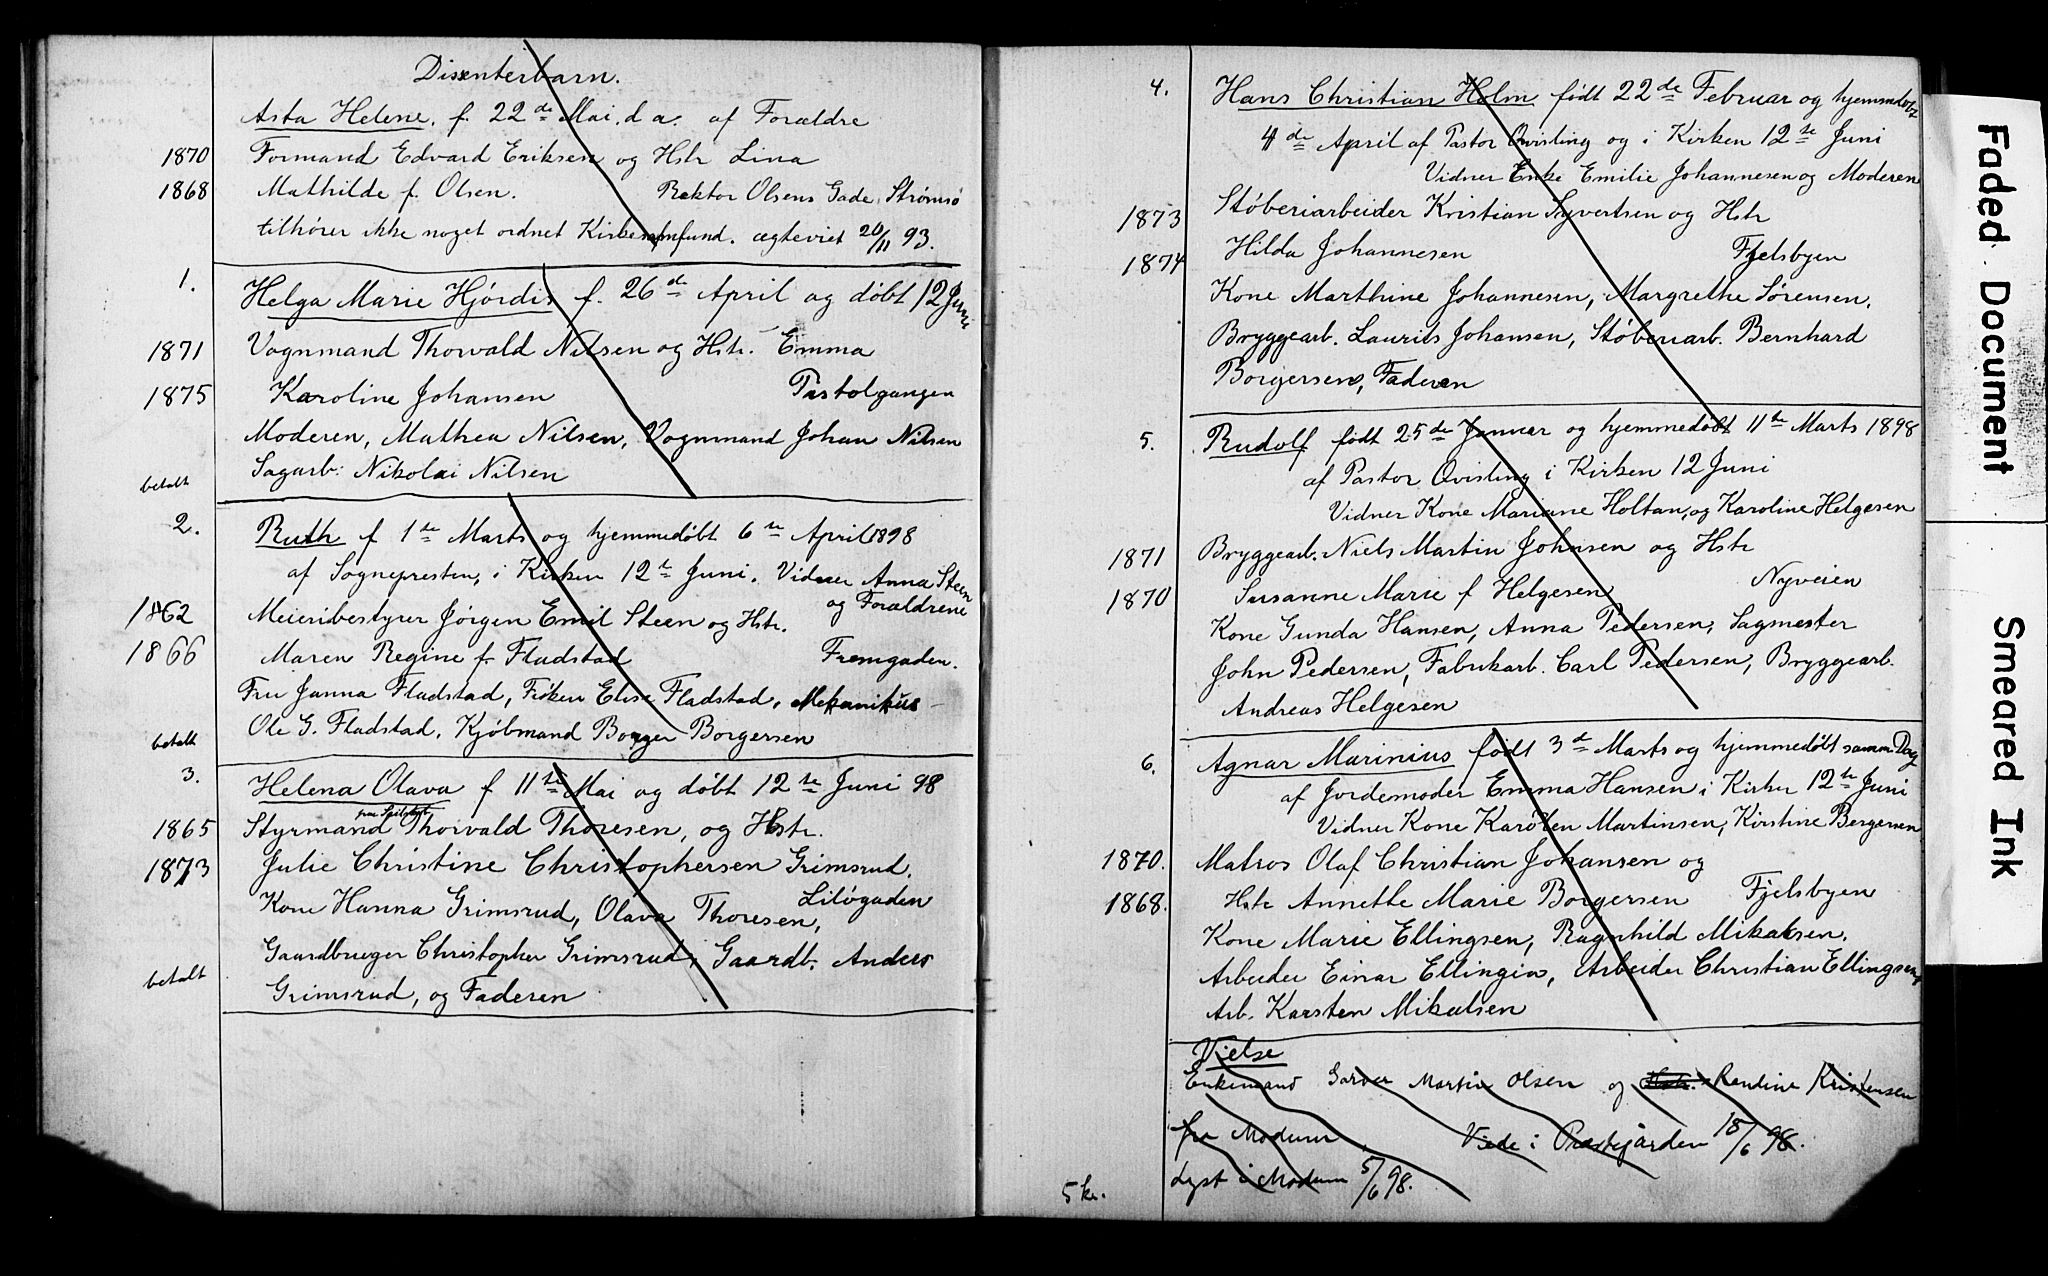 Dissenterbarn.
Asta Helene. f. 22de Mai. d a. af Forældre
1870 Formand Edvard Eriksen og Hstr Lina
1868 Mathilde f. Olsen. Rektor Olsens Gade. Strømsø
tilhører ikke noget ordnet Kirkesamfund. ægteviet 20/11 93.
1.
Helga Marie Hjørdis f. 26de April og døbt 12 Juni
1871 Vognmand Thorvald Nilsen og Hstr. Emma
1875 Karoline Johansen Pistolgangen
Moderen, Mathea Nilsen, Vognmand Johan Nilsen
Sagarb: Nikolai Nilsen
betalt
2. Ruth f 1ste Marts og hjemmedøbt 6te April 1898
af Sognepresten, i Kirken 12te Juni. Vidner Anna Steen
og Forældrene
1862 Meieribestyrer Jørgen Emil Steen og Hstr.
1866 Maren Regine f. Fladstad Fremgaden.
Fru Janna Fladstad, Frøken Elise Fladstad, Mekanikus
Ole G. Fladstad, Kjøbmand Borger Borgersen
betalt
3. Helena Olava f 11te Mai og døbt 12te Juni 98
1865 Styrmand Thorvald Thoresen, og Hstr.
1873 Julie Christine Christophersen Grimsrud.
Liløgaden
Kone Hanna Grimsrud, Olava Thoresen,
Gaardbruger Christopher Grimsrud, Gaardb. Anders
betalt Grimsrud, og Faderen
4. Hans Christian Holm født 22de Februar og hjemmedøbt
4de April af Pastor Qvisling og i Kirken 12te Juni
Vidner Enke Emilie Johannesen og Moderen
1873 Støberiarbeider Kristian Syvertsen og Hstr
1874 Hilda Johannesen Fjelsbyen
Kone Marthine Johannesen, Margrethe Sørensen.
Bryggearb. Laurits Johansen, Støberiarb. Bernhard
Borgersen, Faderen
5. Rudolf født 25de Januar og hjemmedøbt 11te Marts 1898
af Pastor Qvisling i Kirken 12 Juni
Vidner Kone Mariane Holtan, og Karoline Helgesen
1871 Bryggearb. Niels Martin Johnsen og Hstr
1870 Susanne Marie f Helgesen Nyveien
Kone Gunda Hansen, Anna Pedersen, Sagmester
John Pedersen, Fabrikarb. Carl Pedersen, Bryggearb.
Andreas Helgesen
6. Agnar Marinius født 3de Marts og hjemmedøbt samme Dag
af Jordemoder Emma Hansen i Kirken 12te Juni
Vidner Kone Karen Martinsen, Kirstine Borgersen
1870. Matros Olaf Christian Johansen og
1868. Hstr Annette Marie Borgersen Fjelsbyen
Kone Marie Ellingsen, Ragnhild Mikalsen.
Arbeider Einar Ellingsen, Arbeider Christian Ellingsen,
Arb. Karsten Mikalsen
Vielse
Enkemand Garver Martin Olsen og Hstr. Rendine Kristensen
fra Modum Viede i Præstegården 18/6 98.
5 kr. Lyst i Modum 5/6 98.
Faded Document
Smeared Ink